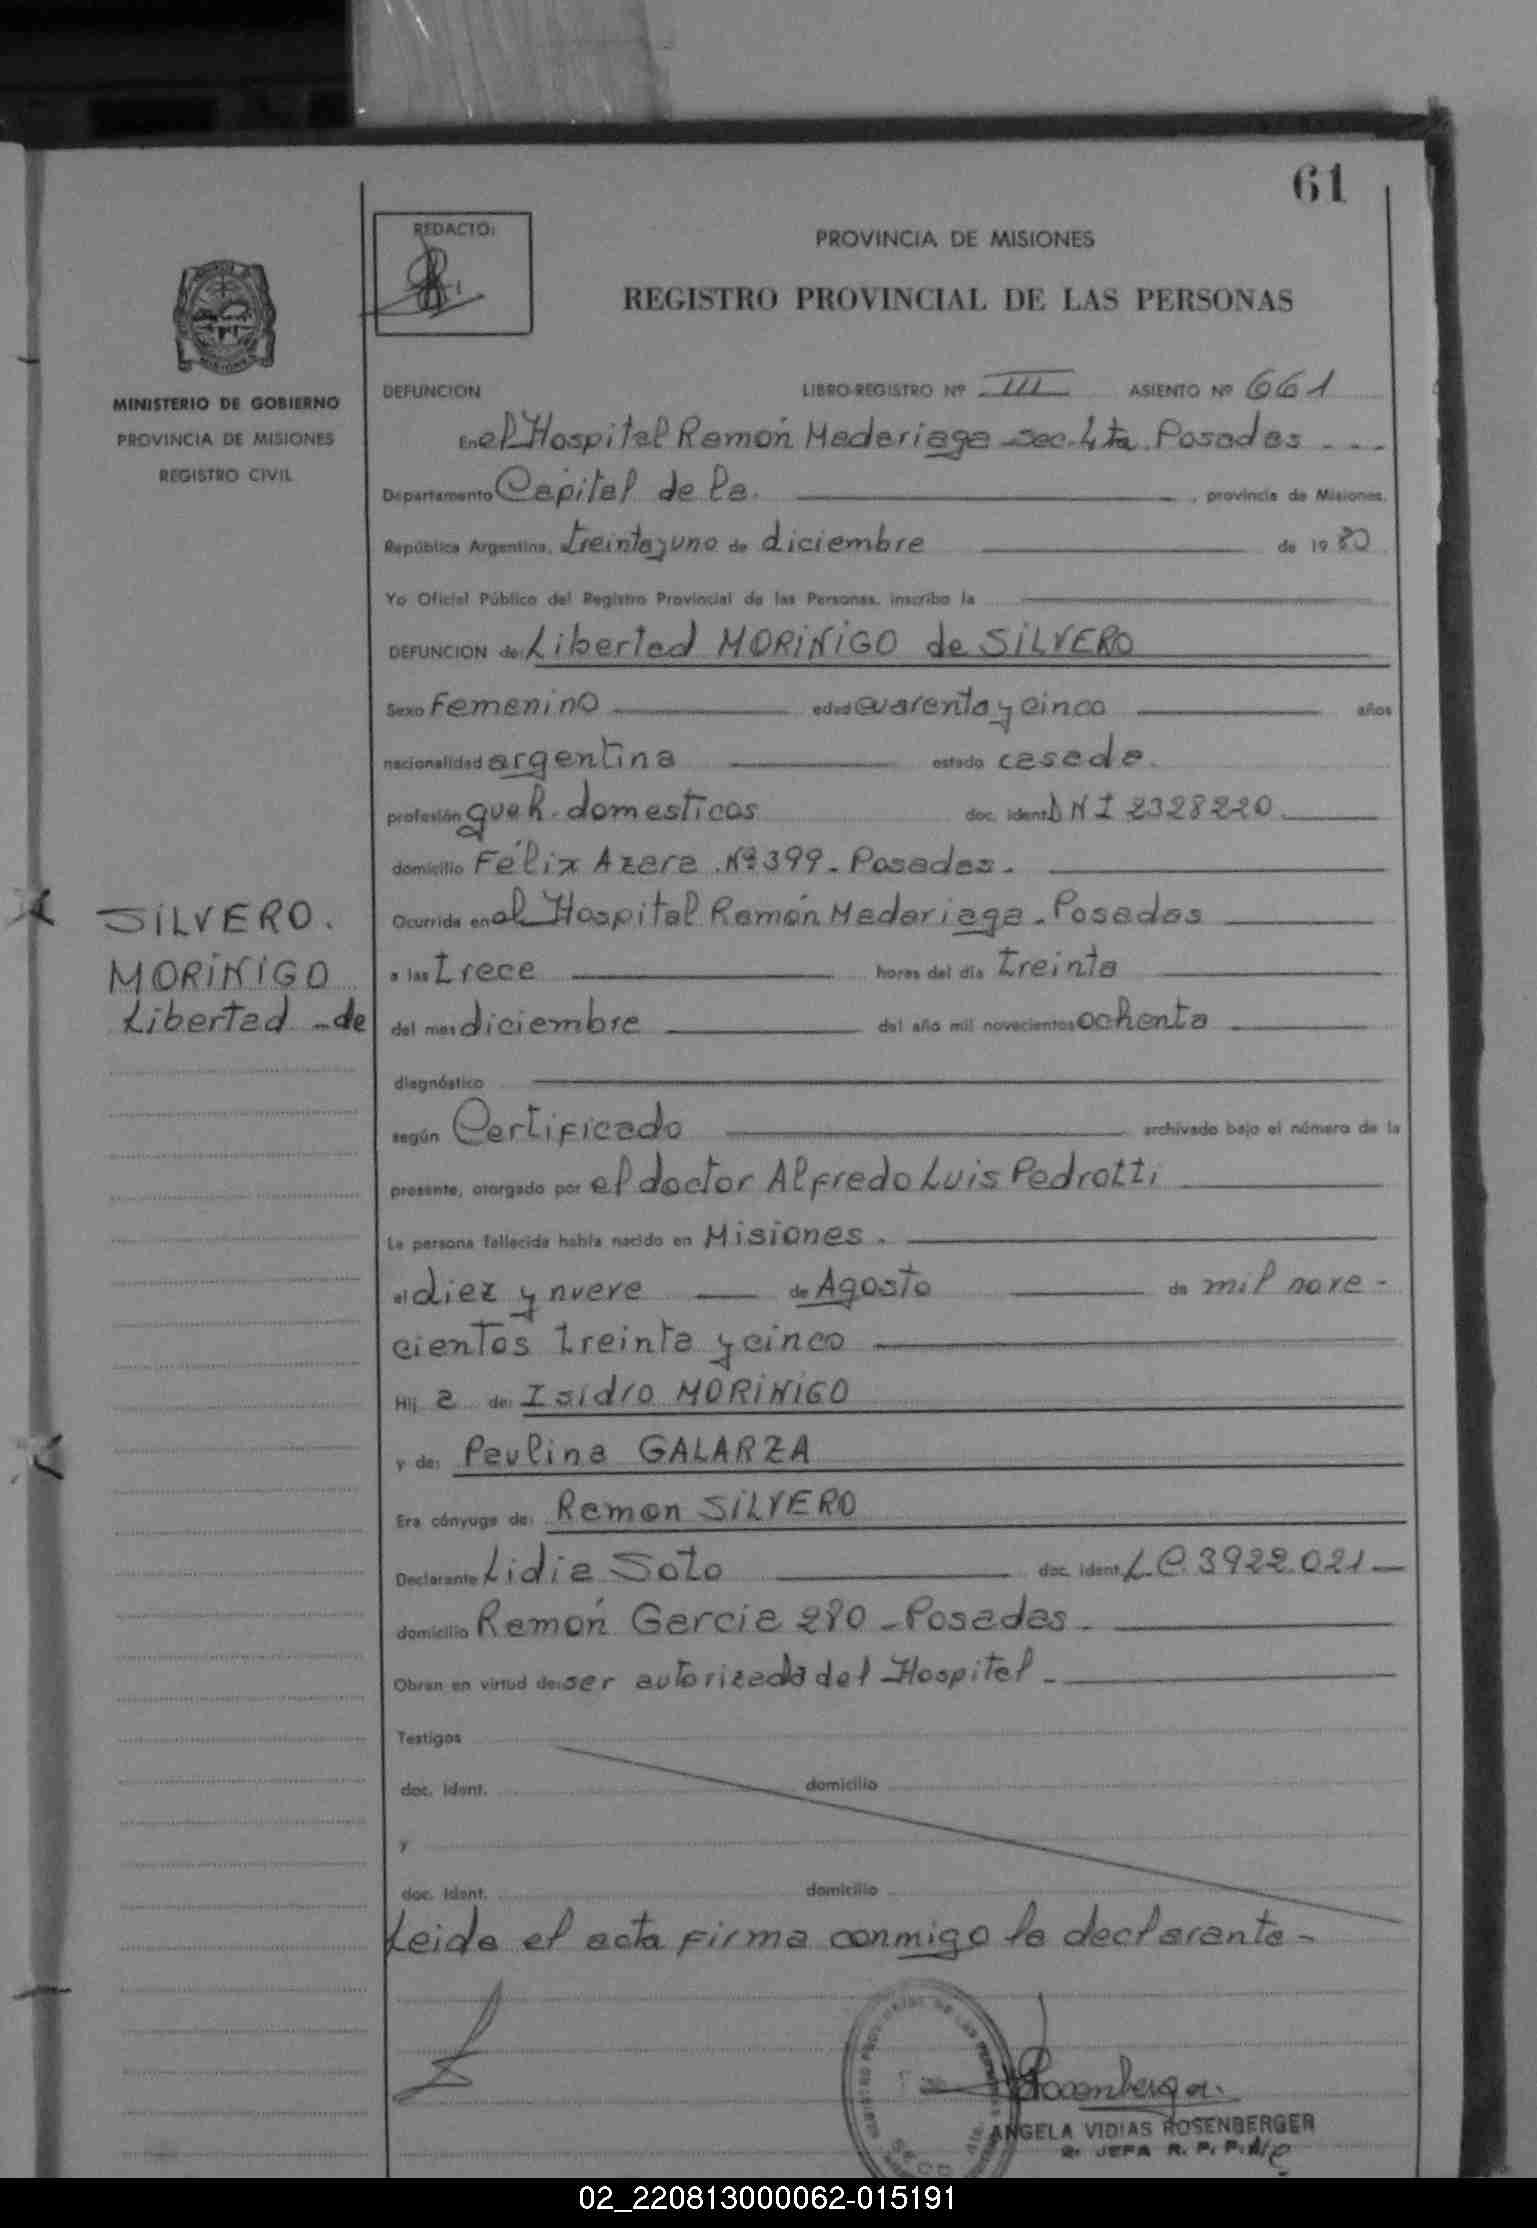 61
REDACTO:
PROVINCIA DE MISIONES
REGISTRO PROVINCIAL DE LAS PERSONAS
MINISTERIO DE GOBIERNO
PROVINCIA DE MISIONES
REGISTRO CIVIL
DEFUNCION LIBRO-REGISTRO Nº III ASIENTO Nº 661
En el Hospital Ramón Madariaga sec. 4ta. Posadas
Departamento Capital de la. , provincia de Misiones,
República Argentina, a treinta y uno de diciembre de 1980
Yo Oficial Público del Registro Provincial de las Personas, inscribo la
DEFUNCION de: Libertad MORIÑIGO de SILVERO
Sexo Femenino edad cuarenta y cinco años
nacionalidad argentina estado casada.
profesión queh. domesticos doc. ident. DNI 2328220
domicilio Félix Azara Nº 399 - Posadas.
SILVERO.
MORIÑIGO
Libertad - de
Ocurrida en el Hospital Ramón Madariaga - Posadas
a las trece horas del día treinta
del mes diciembre del año mil novecientos ochenta
diagnóstico
según Certificado archivado bajo el número de la
presente, otorgado por el doctor Alfredo Luis Pedrotti
La persona fallecida había nacido en Misiones.
el diez y nueve de Agosto de mil nove-
cientos treinta y cinco
Hij a de: Isidro MORIÑIGO
y de: Paulina GALARZA
Era cónyuge de: Ramon SILVERO
Declarante Lidia Soto doc. ident. L.C. 3922.021
domicilio Ramón Garcia 280 - Posadas
Obran en virtud de: ser autorizada del Hospital
Testigos
doc. ident. domicilio
y
doc. ident. domicilio
Leida el acta firma conmigo la declarante -
Rosenberger
ANGELA VIDIAS ROSENBERGER
2º JEFA R. P. P.
02_220813000062-015191